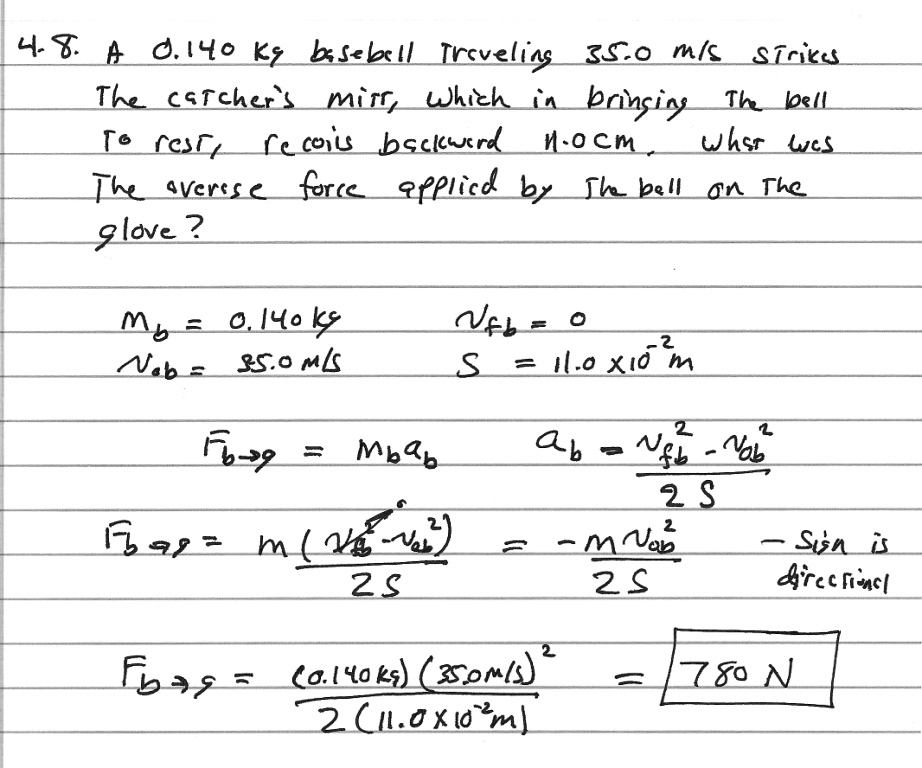 4-8. A 0.140 Kg baseball Traveling 35.0 m/s strikes
The catcher's mitt, which in bringing The ball
To rest, recoils backward 11.0cm. What was
The average force applied by The ball on The
glove?
m_b = 0.140 kg    v_fb = 0
v_ob = 35.0 m/s    S = 11.0 x10^-2 m
F_b→g = m_b a_b    a_b = (v_fb^2 - v_ob^2) / 2S
F_b→g = m(v_fb^2 - v_ob^2) / 2S = -m v_ob^2 / 2S    - sign is
directional
F_b→g = (0.140 kg) (35.0 m/s)^2 / 2(11.0 x10^-2 m) = 780 N